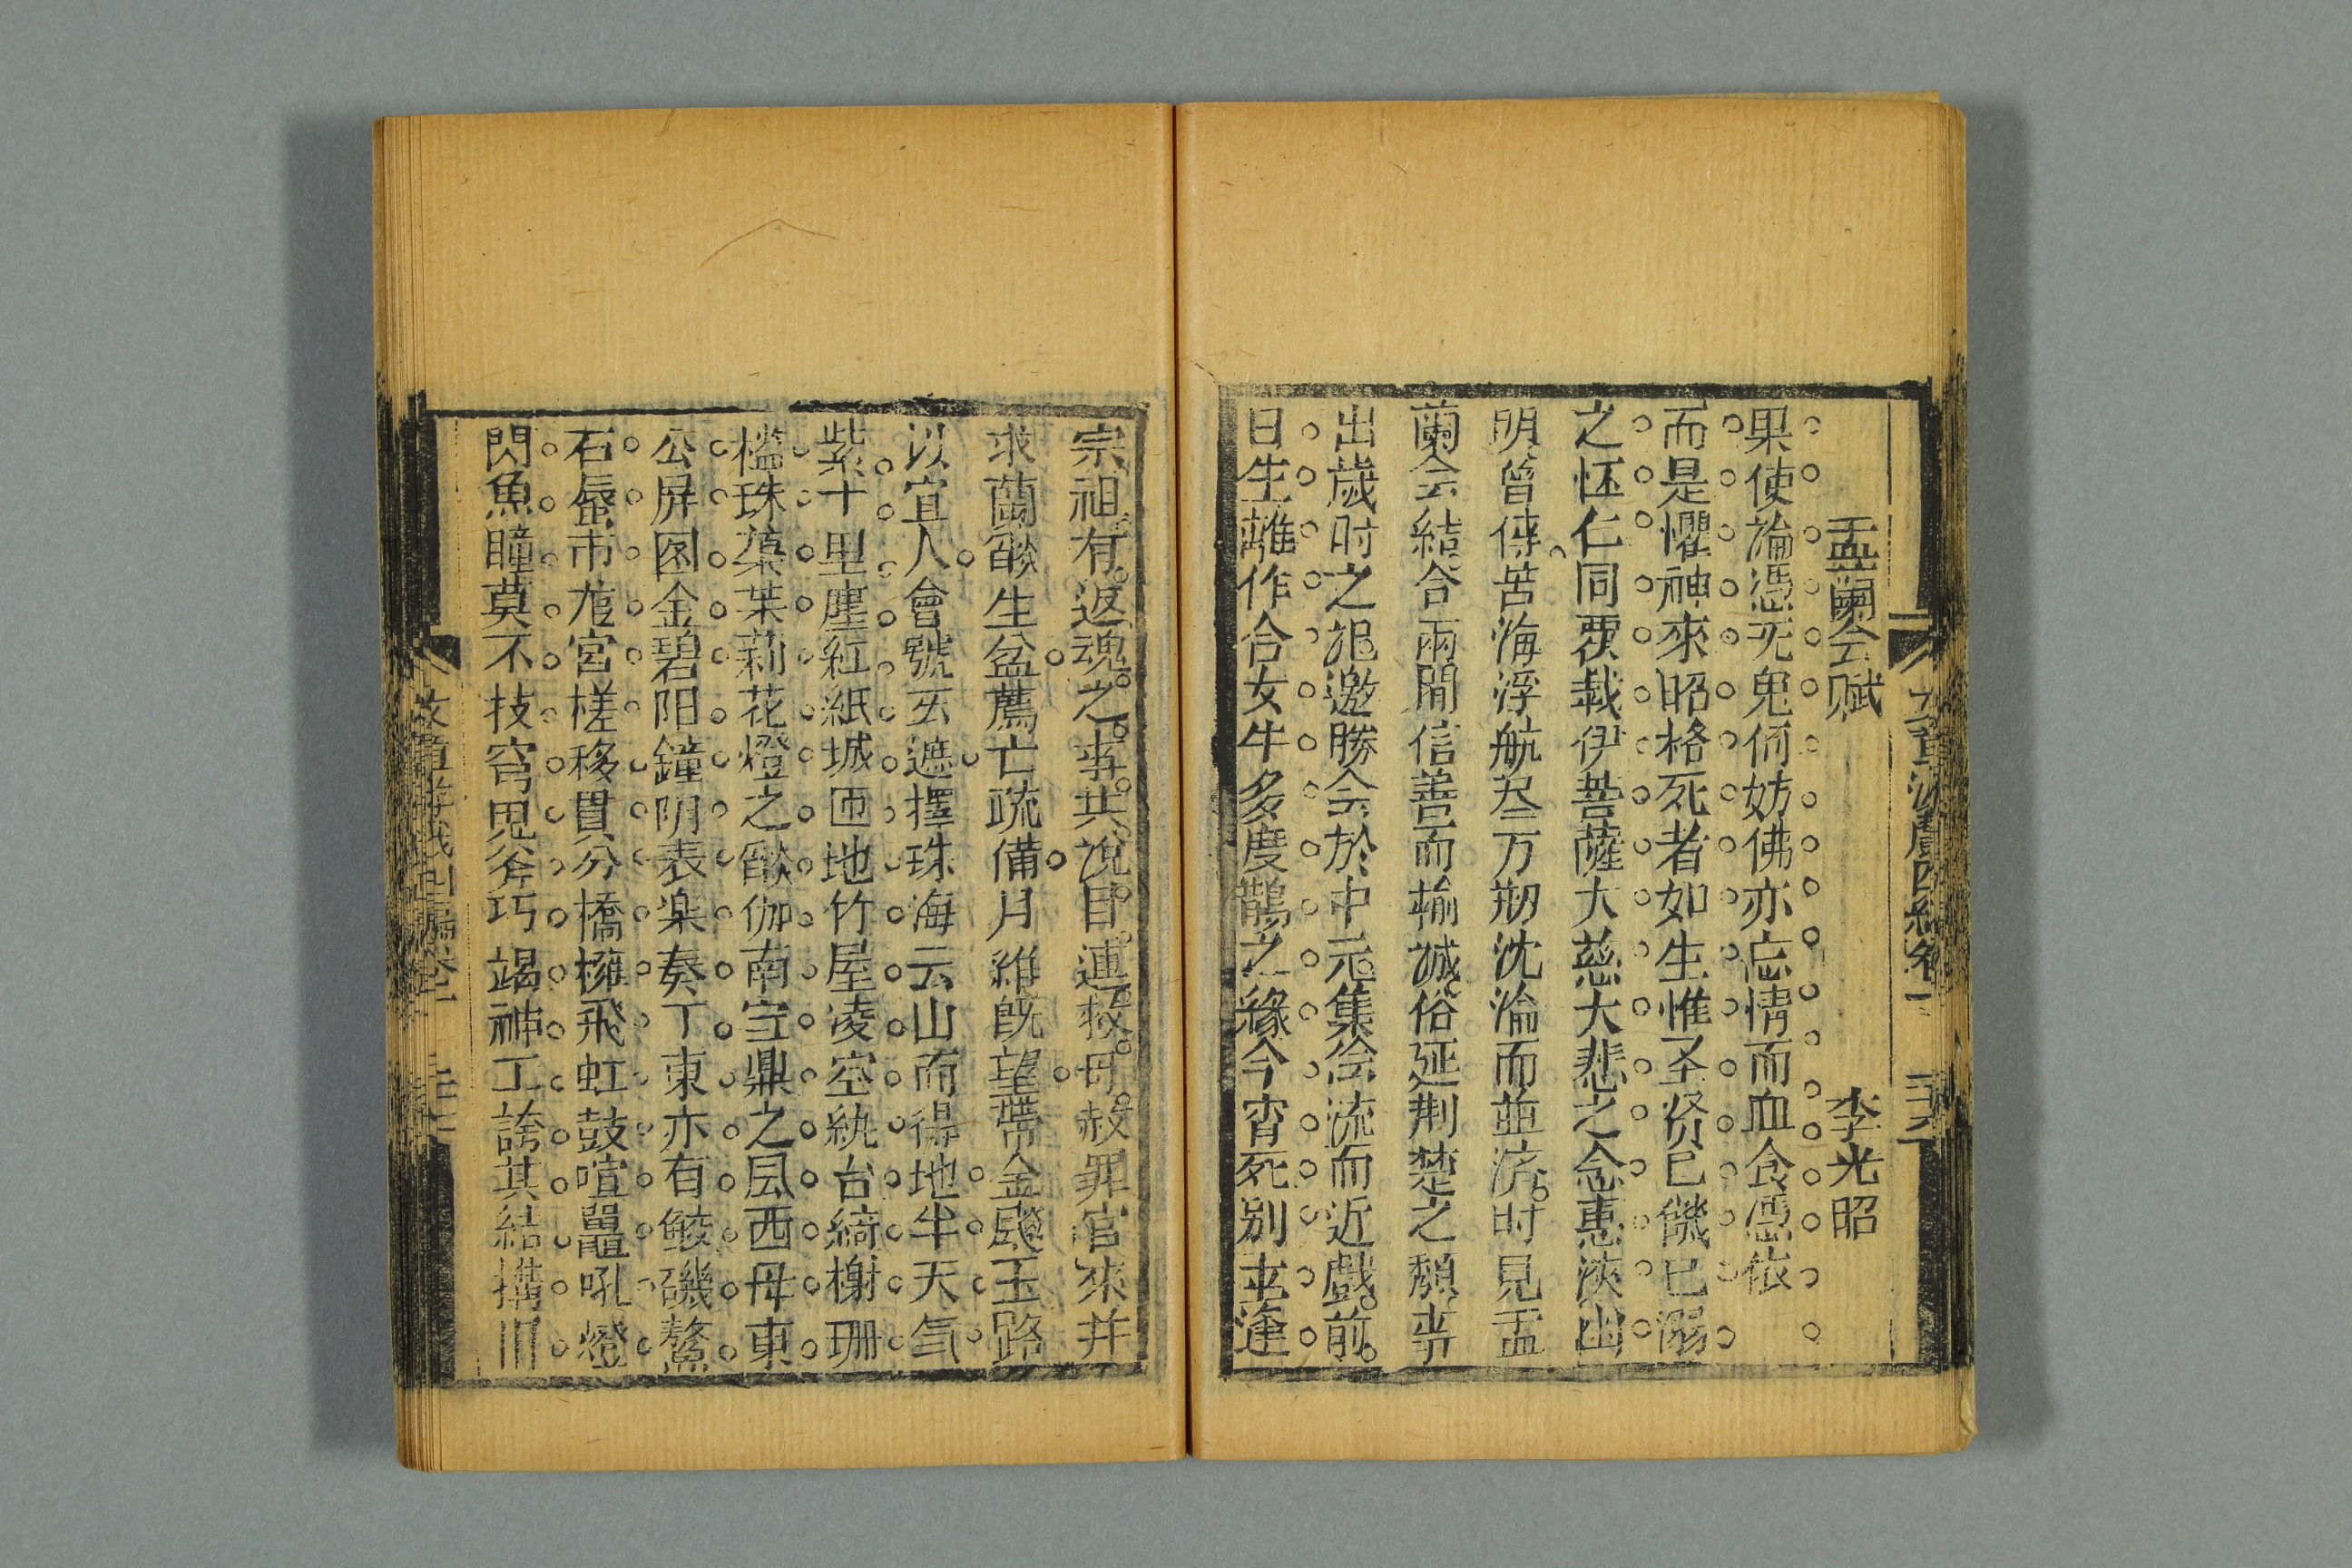 盂蘭会赋 李光昭
果使論憑无鬼何妨佛亦忘情而血食憑依
而是懼神來昭格死者如生惟圣贤己饑已溺
之怀仁同覄載伊菩薩大慈大悲之念惠浹幽
明曾傳苦海浮航尽万刼沈淪而並済时見盂
蘭会結合兩間信善而输誠俗延荆楚之頽亊
出歲时之記邀勝会於中元集绘流而近戲前
日生離作合女牛多度鵲之緣今宵死别幸逢
宗祖有返魂之亊共说目連救母赦罪官來并
求蘭燄生盆薦亡疏備月維旣望帶金飈玉路
以宜人會號玄遮擇珠海云山而得地半天气
紫十里塵紅紙城匝地竹屋凌空紈台綺榭珊
檻珠蕖茉莉花燈之燄伽南宝鼎之凬西母東
公屏图金碧阳鐘阴表楽奏丁東亦有鲛磯鰲
石蜃市尨宮槎移貫分橋擁飛虹鼓喧鼉吼燈
閃魚瞳莫不技窮鬼斧巧竭神工誇其結搆川